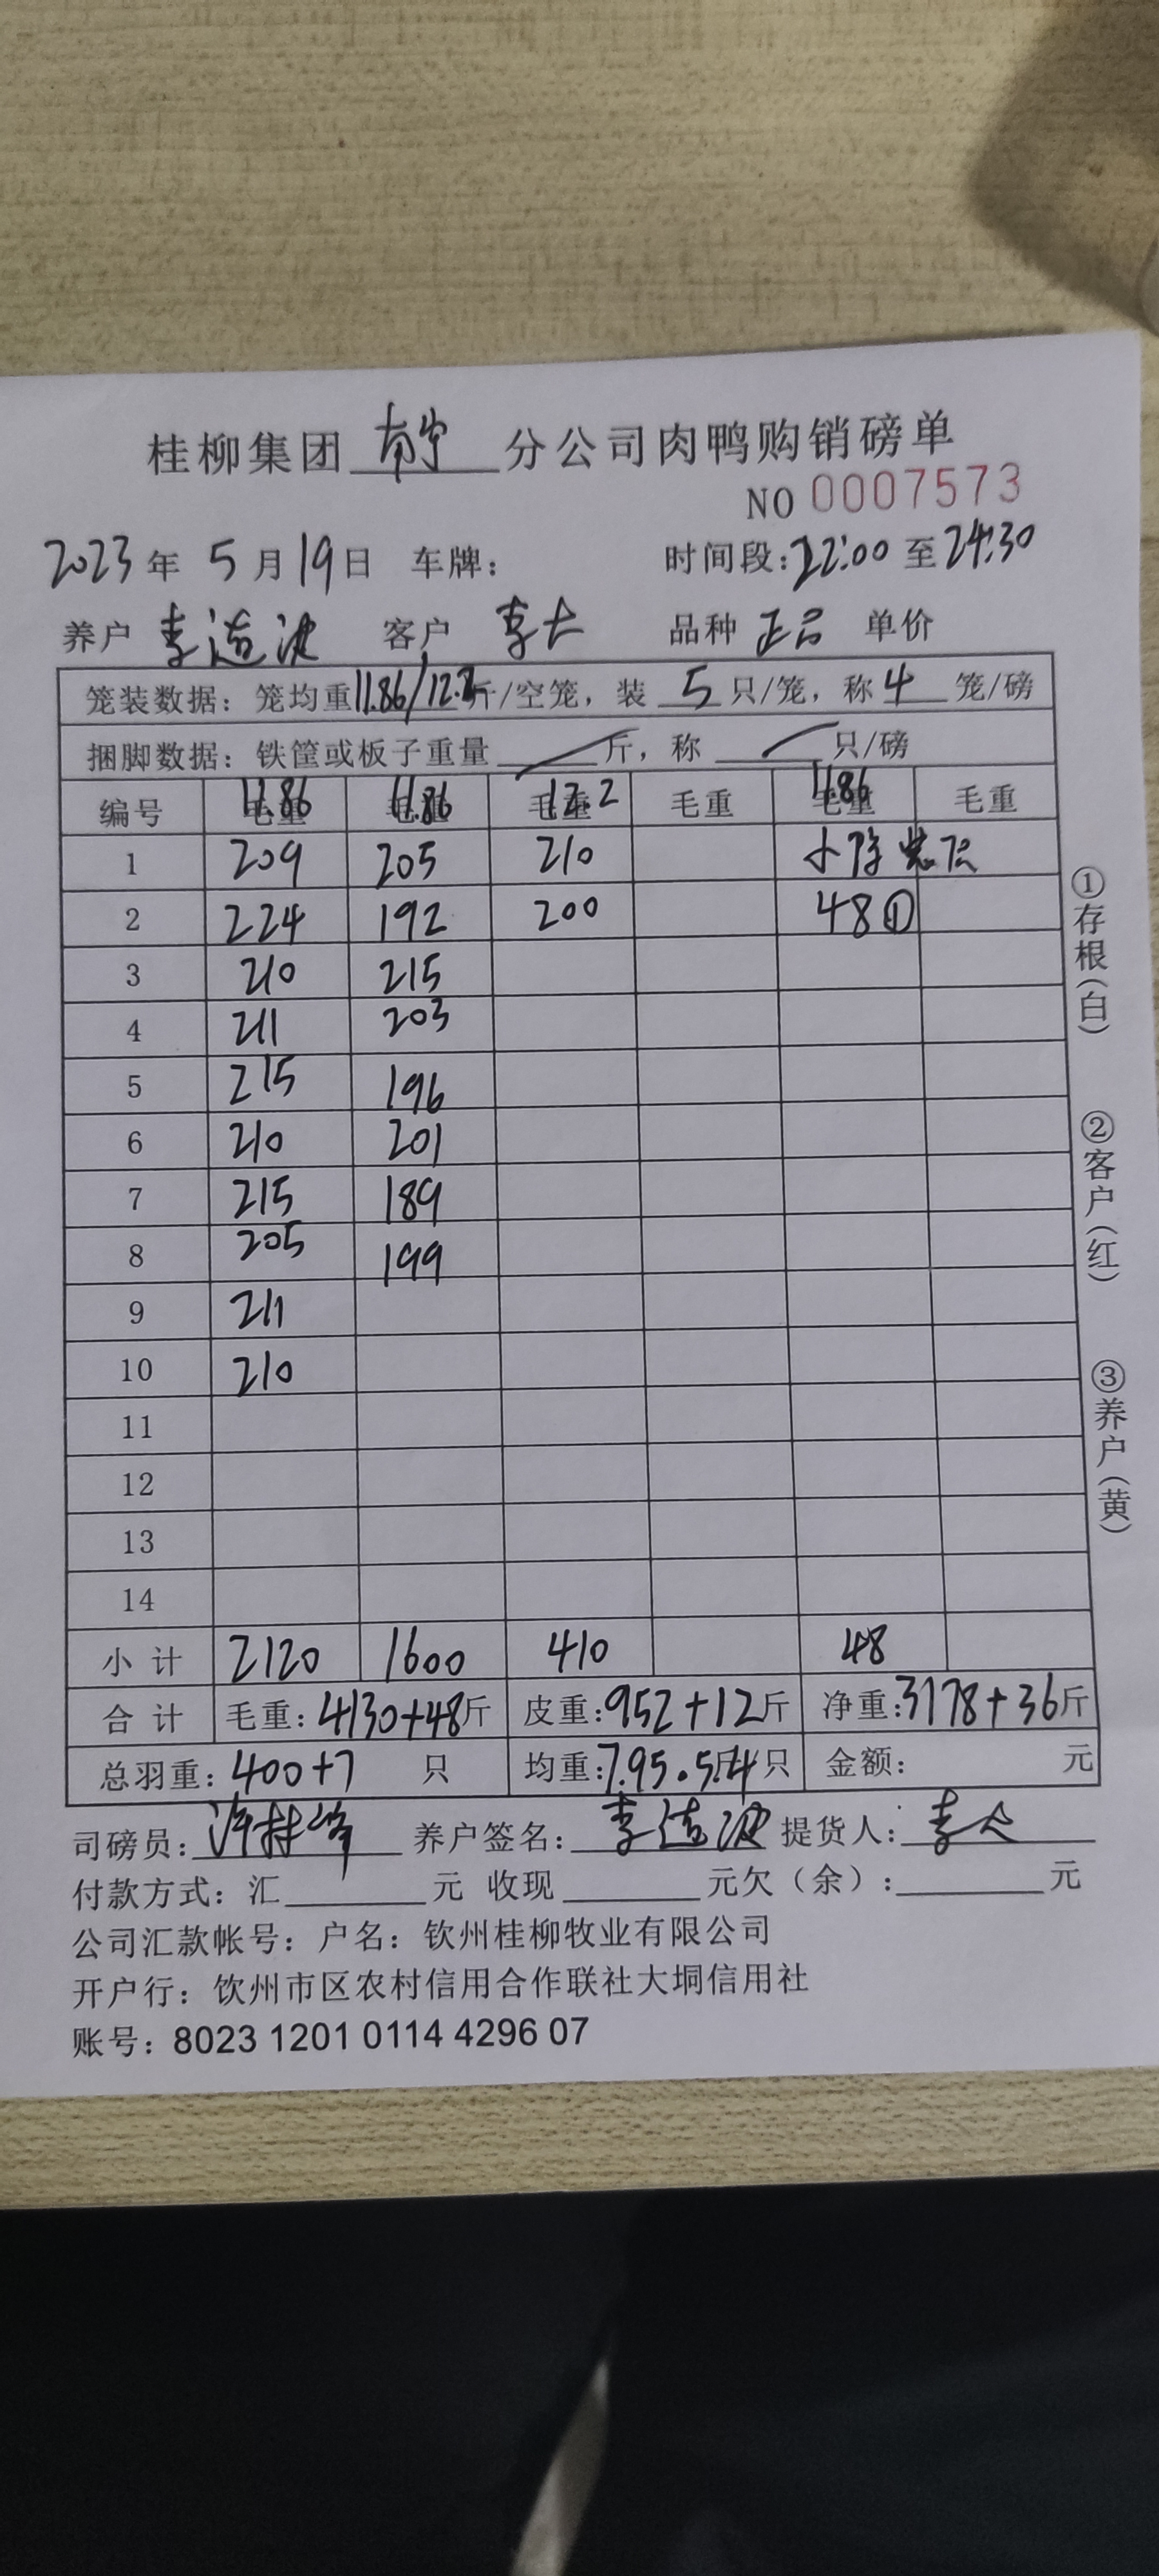 桂柳集团 南宁 分公司肉鸭购销磅单
NO 0007573
2023年 5月19日 车牌: 时间段:22:00 至24:30
养户 李造波 客户 李 品种 正品 单价
笼装数据: 笼均重11.86/12.2斤/空笼, 装 5 只/笼, 称 4 笼/磅
捆脚数据: 铁筐或板子重量 斤, 称 只/磅
编号 毛重 11.86 毛重 11.86 毛重 12.2 毛重 毛重 11.86 毛重
1 209 205 210
2 224 192 200 48①
3 210 215
4 211 203
5 215 196
6 210 201
7 215 189
8 205 199
9 211
10 210
11
12
13
14
小计 2120 1600 410 48
合计 毛重: 4130+48斤 皮重: 952+12斤 净重: 3178+36斤
总羽重: 400+7 只 均重: 7.95.5.14只 金额: 元
司磅员: 养户签名: 李造波 提货人: 李
付款方式: 汇 元 收现 元欠(余): 元
公司汇款帐号: 户名: 钦州桂柳牧业有限公司
开户行: 饮州市区农村信用合作联社大垌信用社
账号: 8023 1201 0114 4296 07
①存根(白)
②客户(红)
③养户(黄)